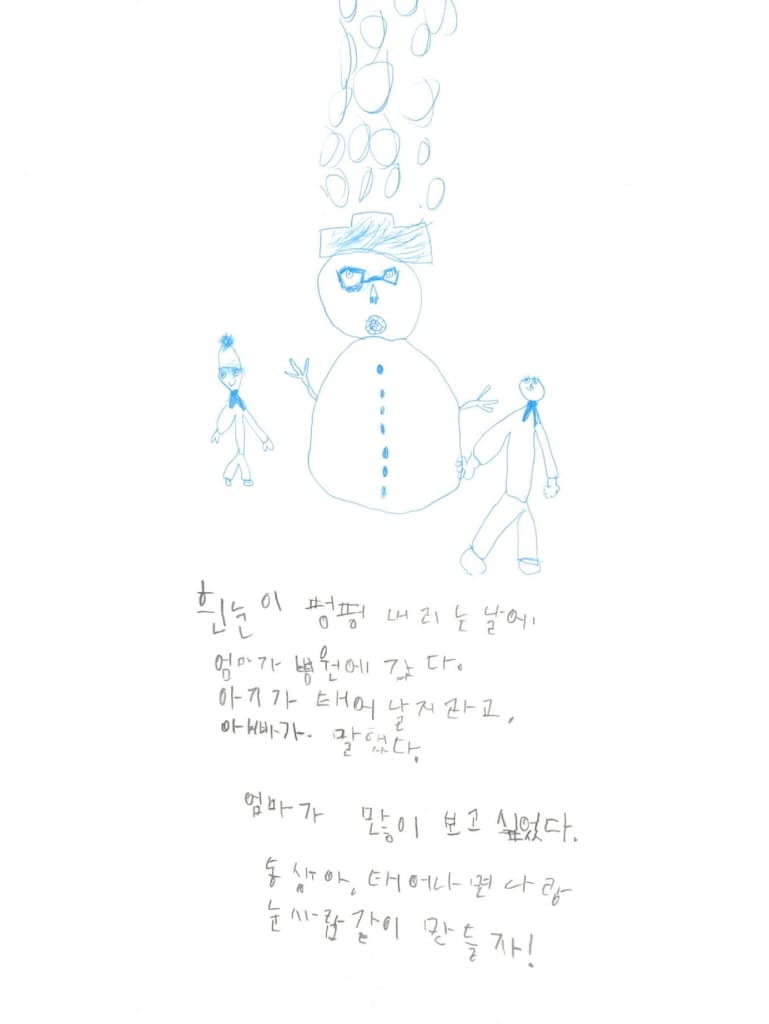 흰눈이 펑펑 내리는 날에
엄마가 병원에 갔다.
아기가 태어날거라고,
아빠가 말했다.
엄마가 많이 보고 싶었다.
동생아, 태어나면 나랑
눈사람같이 만들자!